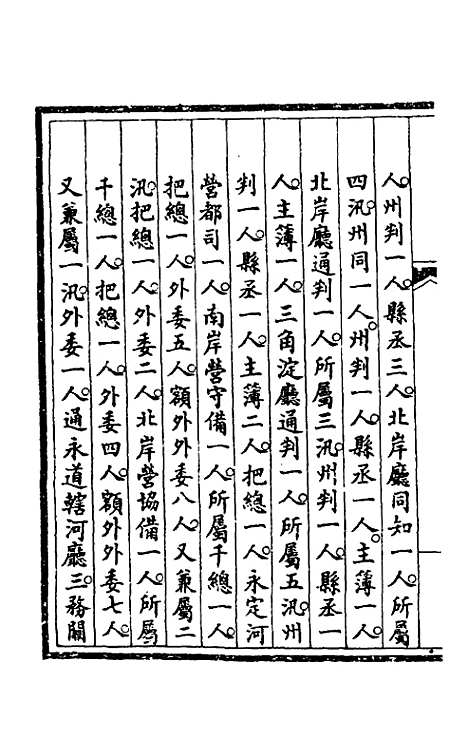 人。州判一人。縣丞三人。北岸廳同知一人。所屬
四汛。州同一人。州判一人。縣丞一人。主簿一人。
北岸廳通判一人。所屬三汛。州判一人。縣丞一
人。主簿一人。三角淀廳通判一人。所屬五汛。州
判一人。縣丞一人。主簿二人。把總一人。永定河
營都司一人。南岸營守備一人。所屬千總一人。
把總一人。外委五人。額外外委八人。又兼屬二
汛。把總一人。外委二人。北岸營協備一人。所屬
千總一人。把總一人。外委四人。額外外委七人。
又兼屬一汛。外委一人。通永道轄河廳三。務關